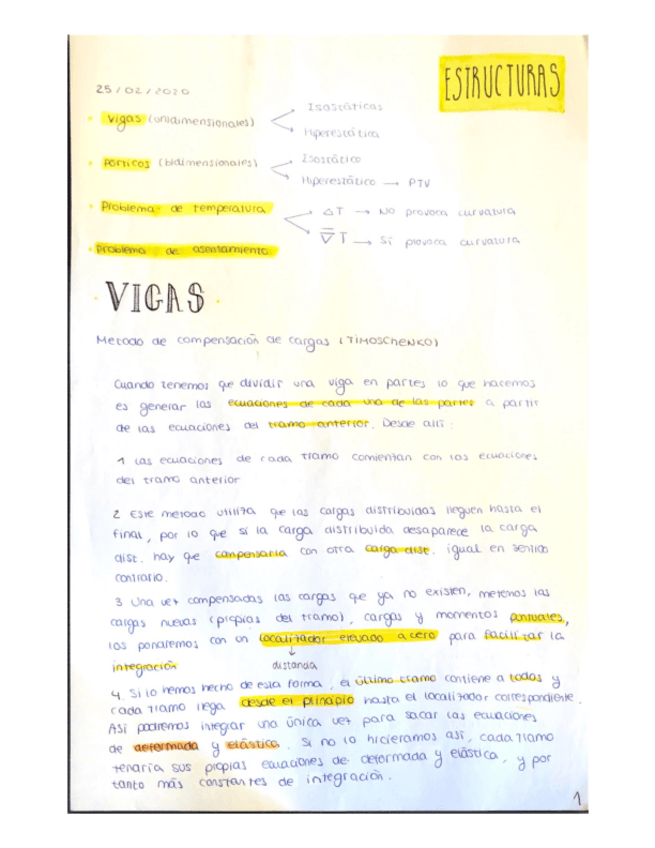 ESTRUCTURAS
25/02/2020
• Vigas (unidimensionales)
Isostáticas
Hiperestática
• Porticos (bidimensionales)
Isostático
Hiperestático → PTV
• Problema de temperatura
ΔT → No provoca curvatura
∇T → Si provoca curvatura
• Problema de asentamiento
• VIGAS •
Metodo de compensación de cargas (TIMOSCHENKO)
Cuando tenemos que dividir una viga en partes lo que hacemos
es generar las ecuaciones de cada una de las partes a partir
de las ecuaciones del tramo anterior. Desde alli:
1 Las ecuaciones de cada tramo comienzan con las ecuaciones
del tramo anterior
2 Este metodo utiliza que las cargas distribuidas lleguen hasta el
final, por lo que si la carga distribuida desaparece la carga
dist. hay que compensarla con otra carga dist. igual en sentido
contrario.
3 Una vez compensadas las cargas que ya no existen, metemos las
cargas nuevas (propias del tramo), cargas y momentos puntuales,
los pondremos con un localizador elevado a cero para facilitar la
integración
↓
distancia
4. Si lo hemos hecho de esta forma, el último tramo contiene a todas y
cada tramo llega desde el prinapio hasta el localizador correspondiente.
Asi podremos integrar una única vez para sacar las ecuaciones
de deformada y elástica. Si no lo hicieramos asi, cada tramo
tenaria sus propias ecuaciones de deformada y elástica, y por
tanto más constantes de integración.
1